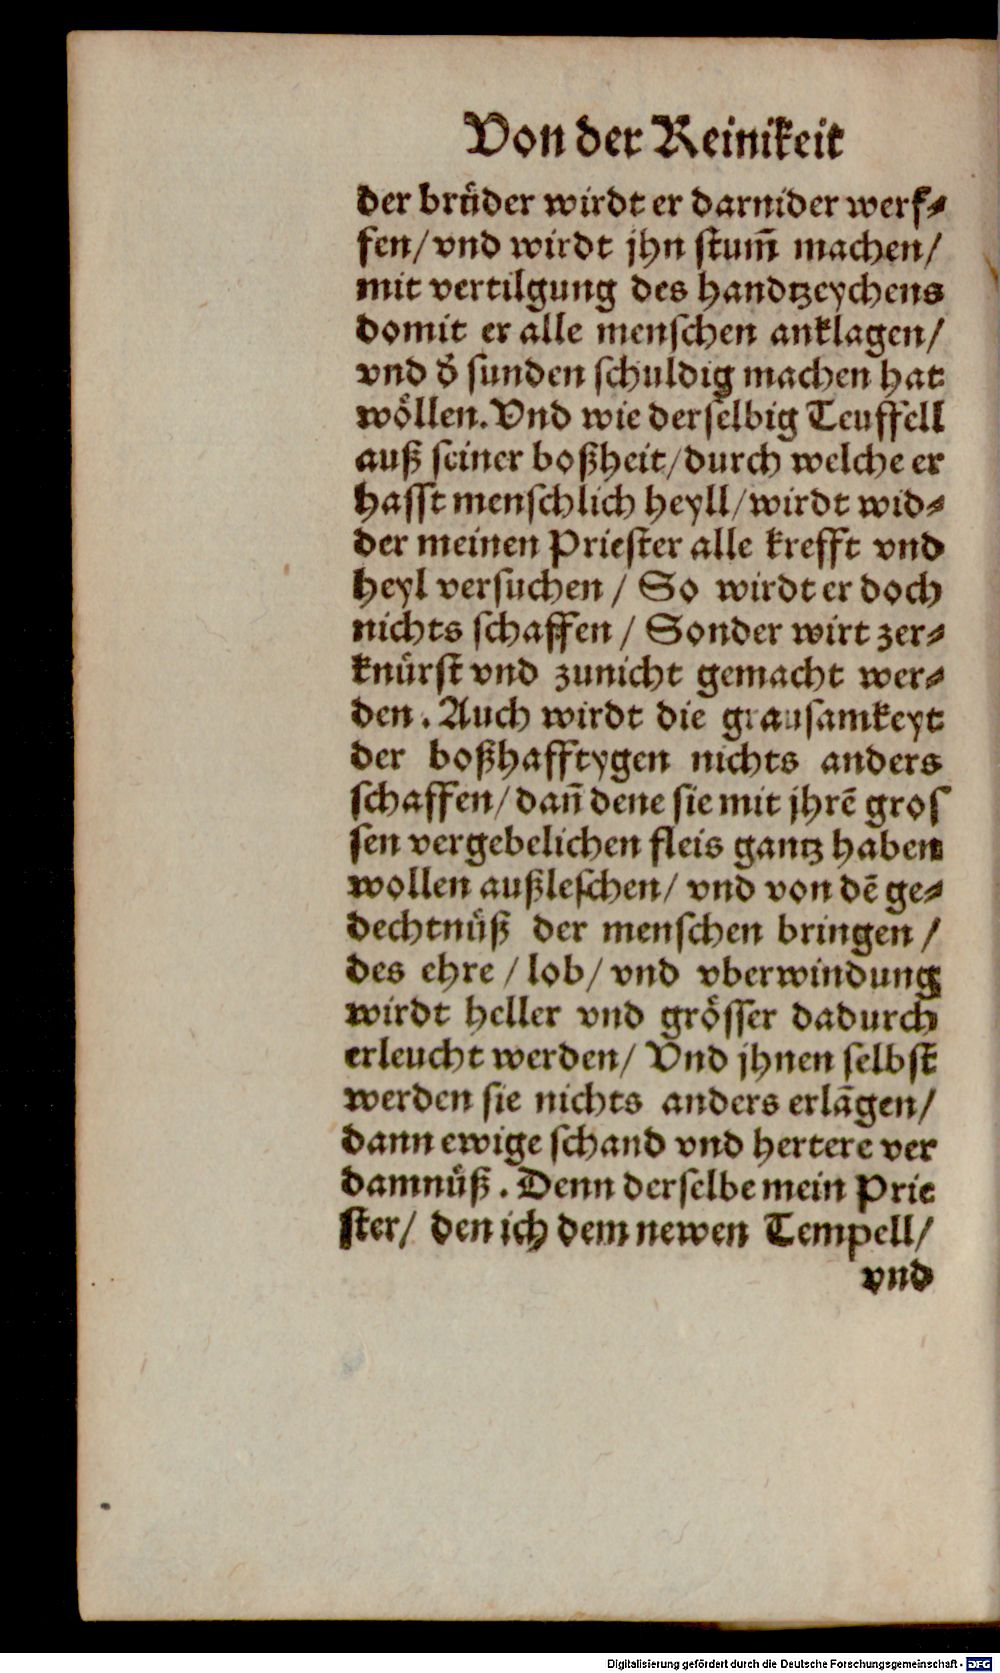 Von der Reinikeit
der brůder wirdt er darnider werf⸗
fen/ vnd wirdt jhn stum̃ machen/
mit vertilgung des handtzeychens
domit er alle menschen anklagen/
vnd d̕ sunden schuldig machen hat
wöllen. Vnd wie derselbig Teuffell
auß seiner boßheit/ durch welche er
hasst menschlich heyll/ wirdt wid⸗
der meinen Priester alle krefft vnd
heyl versuchen / So wirdt er doch
nichts schaffen / Sonder wirt zer⸗
knürst vnd zunicht gemacht wer⸗
den. Auch wirdt die grausamkeyt
der boßhafftygen nichts anders
schaffen/ dañ dene sie mit jhrẽ gros
sen vergebelichen fleis gantz haben
wollen außleschen/ vnd von dẽ ge⸗
dechtnüß der menschen bringen /
des ehre / lob/ vnd vberwindung
wirdt heller vnd grösser dadurch
erleucht werden/ Vnd jhnen selbst
werden sie nichts anders erlãgen/
dann ewige schand vnd hertere ver
damnüß. Denn derselbe mein Prie
ster/ den ich dem newen Tempell/
vnd
Digitalisierung gefördert durch die Deutsche Forschungsgemeinschaft - DFG